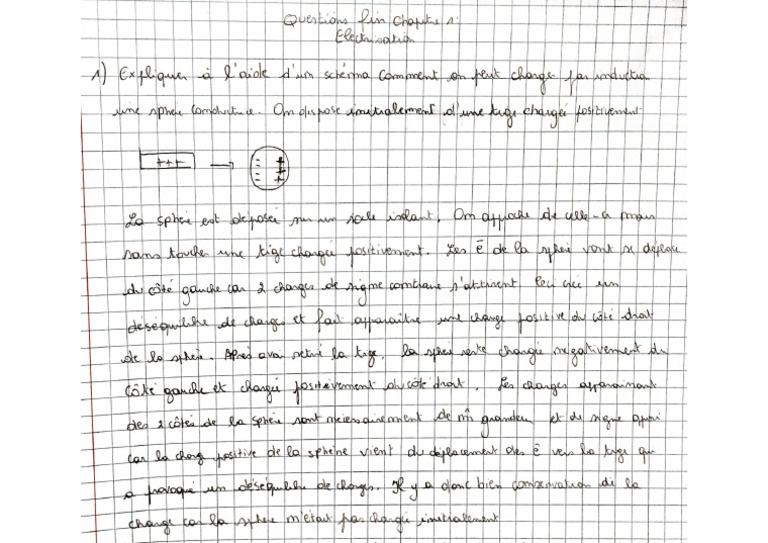 Questions fin Chapitre 1:
Electrisation
1) Expliquer à l'aide d'un schéma comment on peut charger par induction
une sphère conductrice. On dispose initialement d'une tige chargée positivement
+++ → - - - + + +
La sphère est déposée sur un socle isolant. On approche de celle-ci mais
sans toucher une tige chargée positivement. Les ē de la sphère vont se déplacer
du côté gauche car 2 charges de signe contraire s'attirent. Ceci crée un
déséquilibre de charges et fait apparaître une charge positive du côté droit
de la sphère. Après avoir retiré la tige, la sphère reste chargée négativement du
côté gauche et chargée positivement du côté droit. Les charges apparaissant
des 2 côtés de la sphère sont nécessairement de m̂ grandeur et de signe opposé
car la charge positive de la sphère vient du déplacement des ē vers la tige qui
a provoqué un déséquilibre de charges. Il y a donc bien conservation de la
charge car la sphère n'était pas chargée initialement